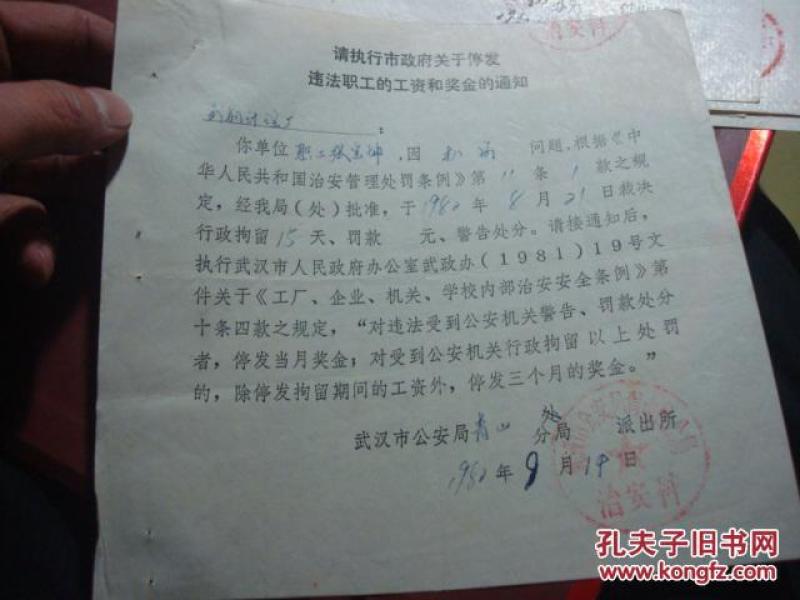 治安科
请执行市政府关于停发
违法职工的工资和奖金的通知
：
你单位职工张宝坤，因 问题，根据《中
华人民共和国治安管理处罚条例》第11条1款之规
定，经我局（处）批准，于1982年8月21日裁决
行政拘留15天、罚款 元、警告处分。请接通知后，
执行武汉市人民政府办公室武政办（1981）19号文
件关于《工厂、企业、机关、学校内部治安安全条例》第
十条四款之规定，“对违法受到公安机关警告、罚款处分
者，停发当月奖金；对受到公安机关行政拘留以上处罚
的，除停发拘留期间的工资外，停发三个月的奖金。”
处
武汉市公安局青山分局 派出所
1982年9月14日
治安科
孔夫子旧书网
kongfz.com